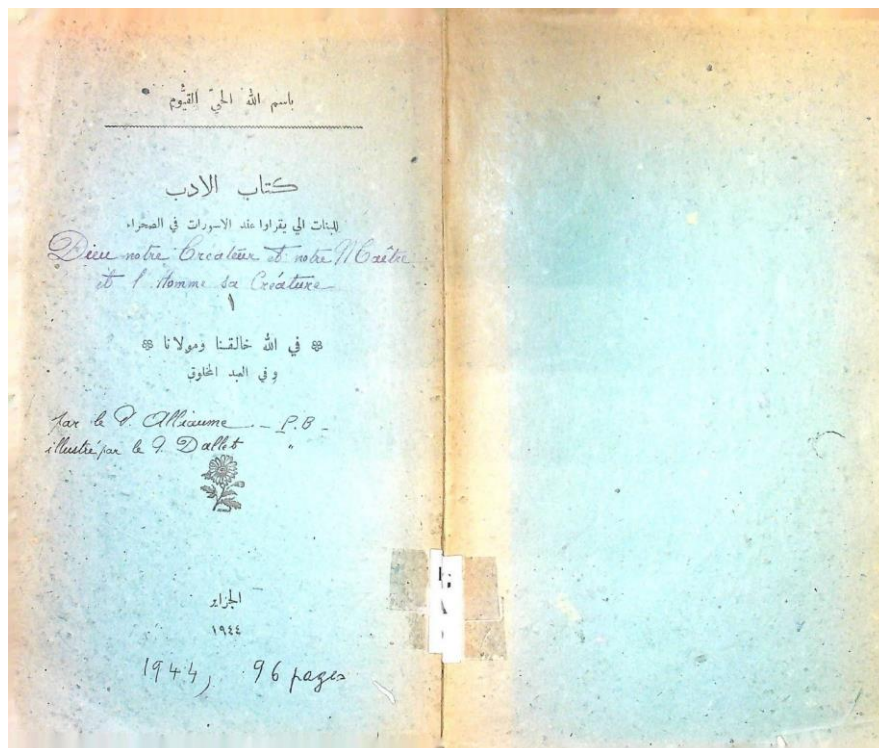 باسم الله الحيّ القيّوم
كتاب الادب
للبنات الي يقراوا عند الاسورات في الصحراء
Dieu notre Créateur et notre Maître
et l'Homme sa Créature
١
في الله خالقنا ومولانا
وفي العبد المخلوق
par le P. Alliaume - P.B -
illustré par le P. Dallet "
الجزاير
١٩٤٤
1944, 96 pages